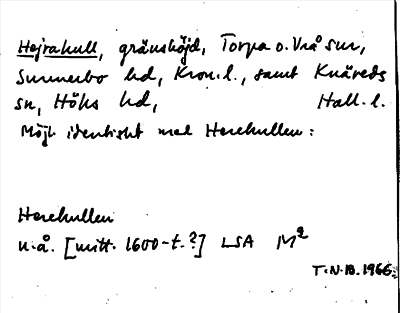 Hejrakull, gränshöjd, Torpa o. Vrå snr,
Sunnerbo hd, Kron. l., samt Knäreds
sn, Höks hd, Hall. l.
Möjl. identiskt med Herekullen:
Herekullen
u.å. [mitt. 1600-t.?] LSA M²
T.N.B. 1966.